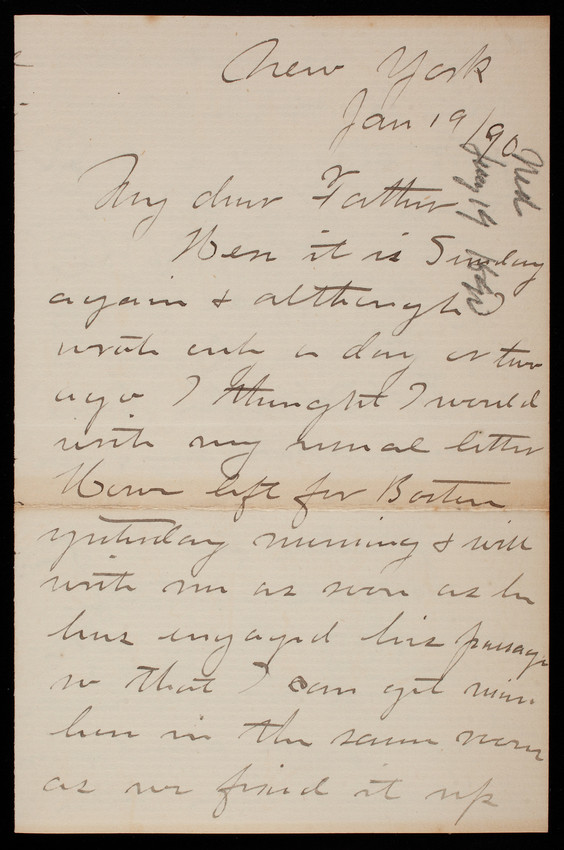 New York
Jan 19/90
Ned
Jany 19 1890
My dear Father
Here it is Sunday
again & although I
wrote only a day or two
ago I thought I would
write my usual letter
left for Boston
yesterday morning & will
write me as soon as he
has engaged his passage
so that I can get mine
here in the same room
as we fixed it up